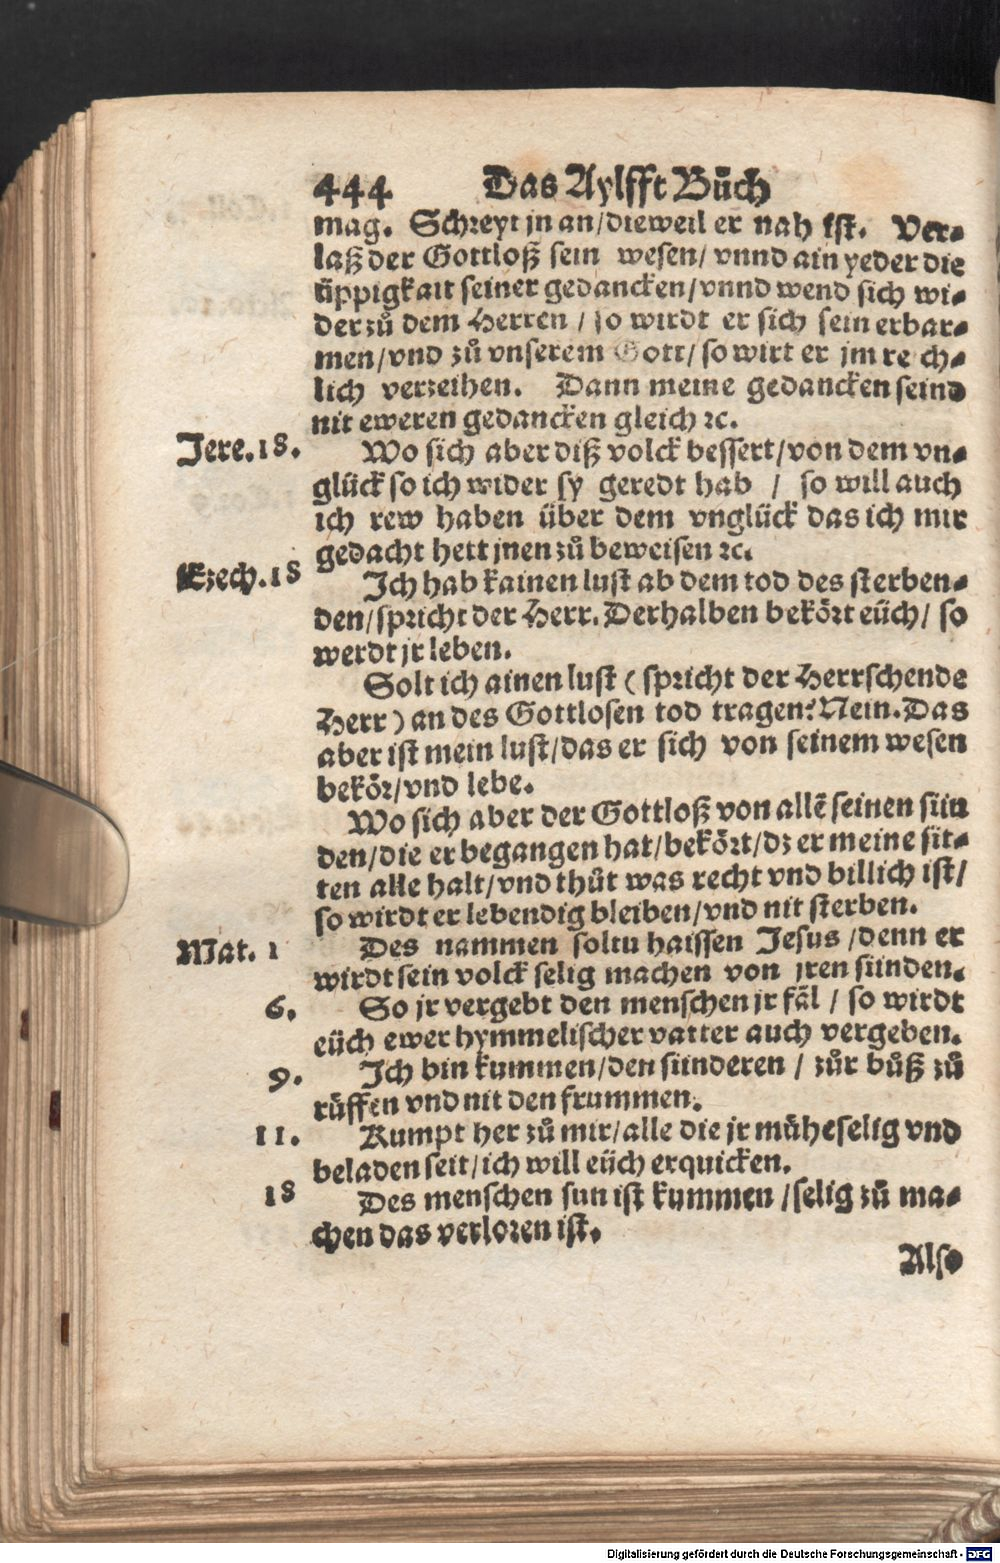 444 Das Aylfft Bůch
mag. Schreyt jn an/dieweil er nah ist. Ver-
laß der Gottloß sein wesen/ vnnd ain yeder die
üppigkait seiner gedancken/vnnd wend sich wi-
der zů dem Herren / so wirdt er sich sein erbar-
men/vnd zů vnserem Gott/ so wirt er jm reich-
lich verzeihen. Dann meine gedancken seind
nit eweren gedancken gleich ꝛc.
Jere.18. Wo sich aber diß volck bessert/von dem vn-
glück so ich wider sy geredt hab / so will auch
ich rew haben über dem vnglück das ich mir
gedacht hett jnen zů beweisen ꝛc.
Ezech.18 Ich hab kainen lust ab dem tod des sterben-
den/spricht der Herr. Derhalben bekört eüch/ so
werdt jr leben.
Solt ich ainen lust (spricht der Herrschende
Herr) an des Gottlosen tod tragen? Nein. Das
aber ist mein lust/das er sich von seinem wesen
bekör/vnd lebe.
Wo sich aber der Gottloß von allẽ seinen sün
den/die er begangen hat/bekört/dz er meine sit-
ten alle halt/vnd thůt was recht vnd billich ist/
so wirdt er lebendig bleiben/vnd nit sterben.
Mat. 1 Des nammen soltu haissen Jesus /denn er
wirdt sein volck selig machen von jren sünden.
6. So jr vergebt den menschen jr fäl / so wirdt
eüch ewer hymmelischer vatter auch vergeben.
9. Ich bin kummen/den sünderen / zůr bůß zů
růffen vnd nit den frummen.
11. Kumpt her zů mir/alle die jr müheselig vnd
beladen seit/ich will eüch erquicken.
18 Des menschen sun ist kummen /selig zů ma-
chen das verloren ist.
Also
Digitalisierung gefördert durch die Deutsche Forschungsgemeinschaft - DFG